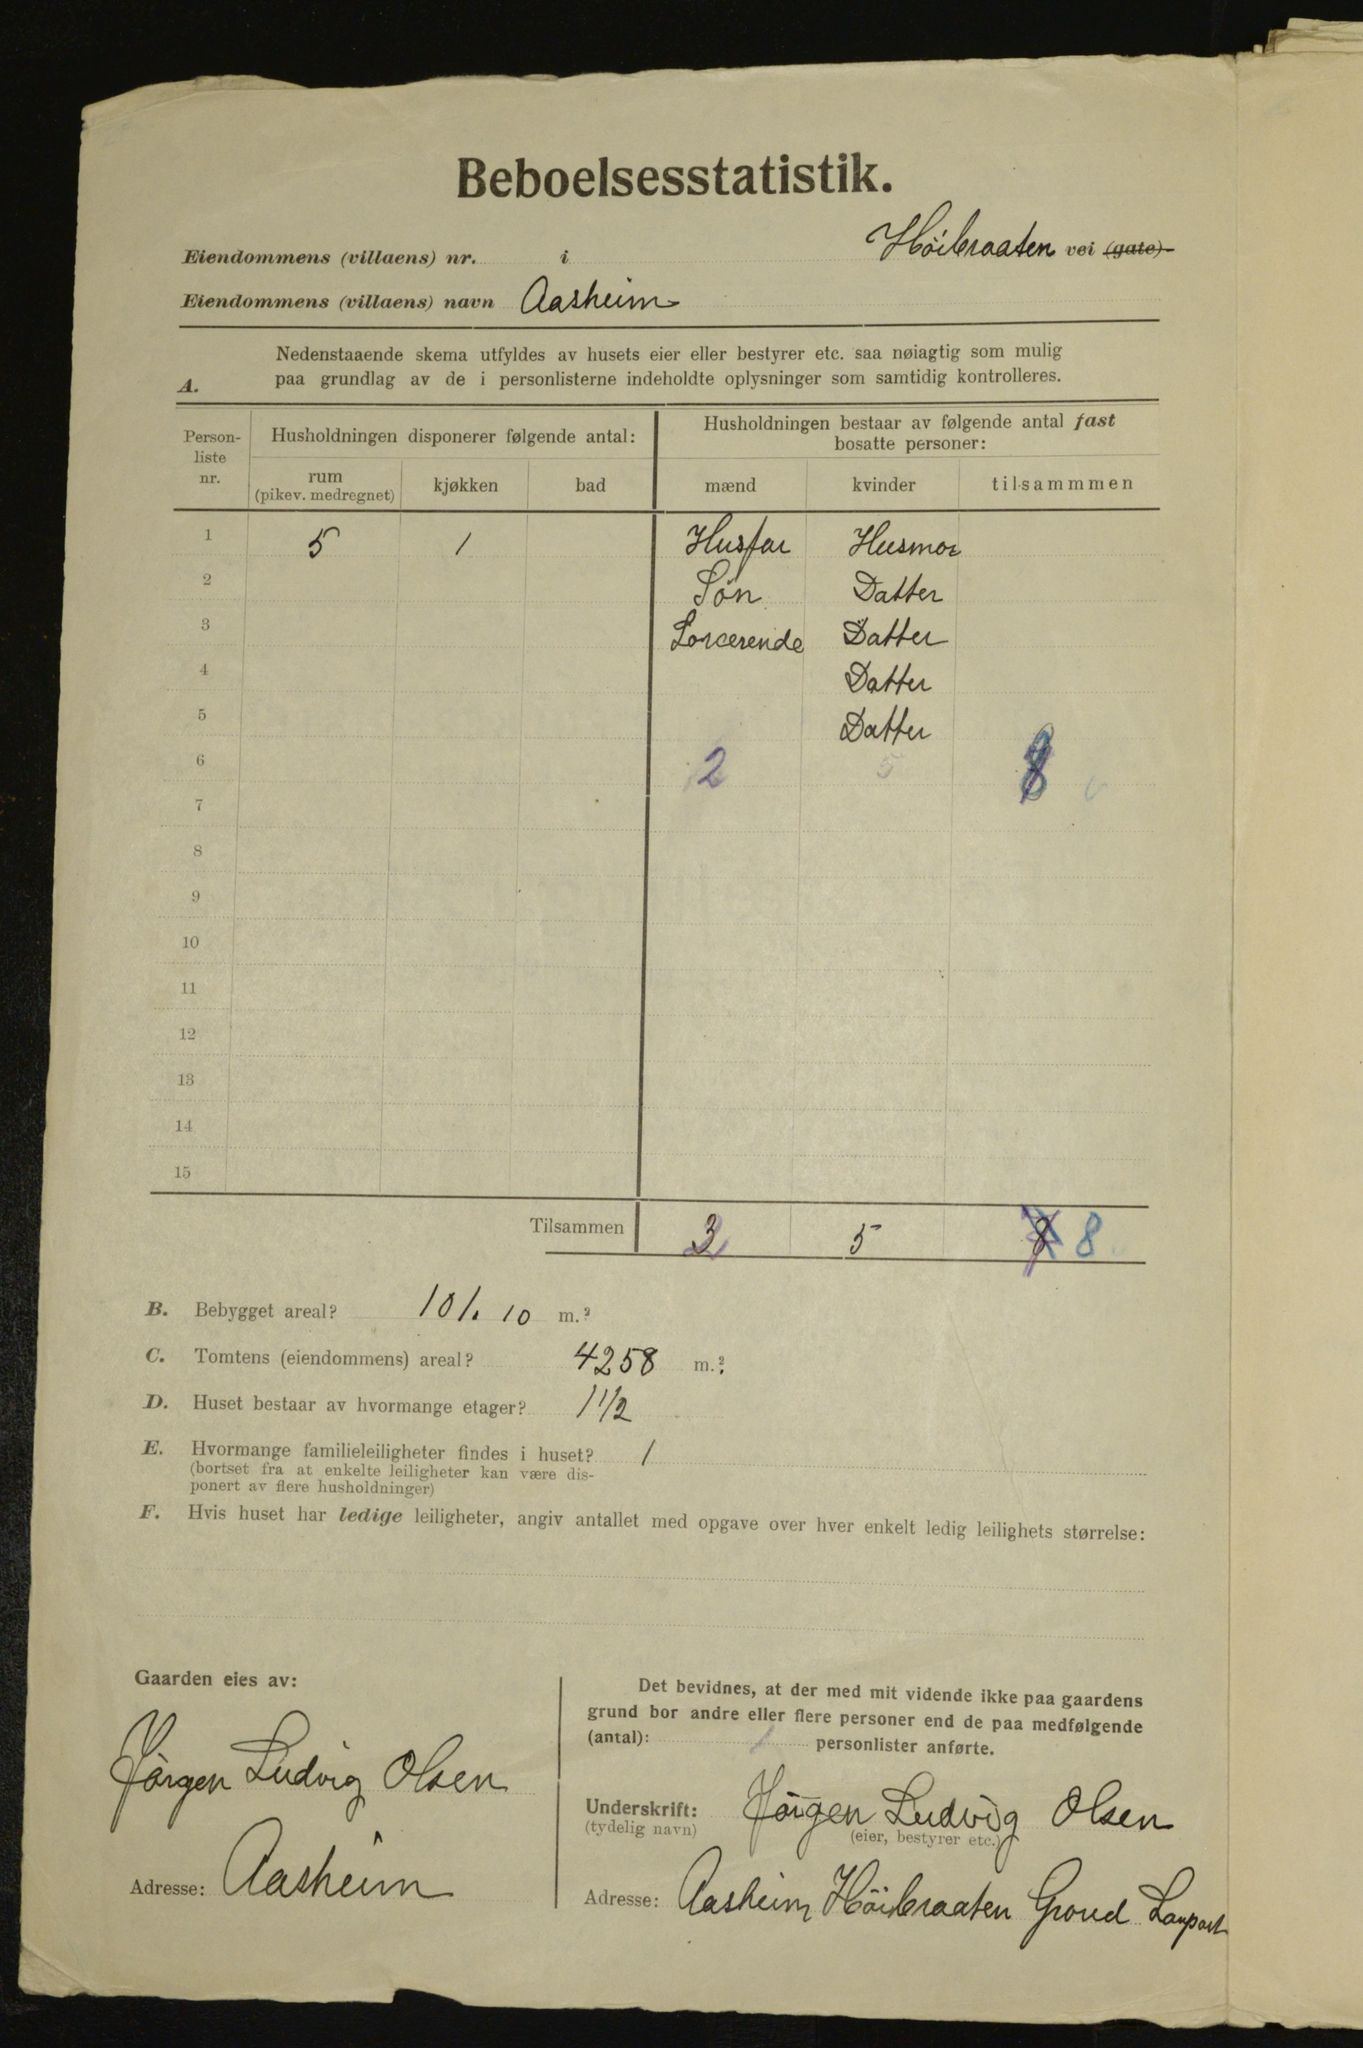 Beboelsesstatistik.
Eiendommens (villaens) nr. i Höibraaten vei (gate)
Eiendommens (villaens) navn Aasheim
A.
Nedenstaaende skema utfyldes av husets eier eller bestyrer etc. saa nøiagtig som mulig
paa grundlag av de i personlisterne indeholdte oplysninger som samtidig kontrolleres.
Person-
liste
nr.
Husholdningen disponerer følgende antal:
Husholdningen bestaar av følgende antal fast
bosatte personer:
rum
(pikev. medregnet)
kjøkken
bad
mænd
kvinder
tilsammmen
1 5 1 Husfar Husmor
2 Sön Datter
3 Datter
4 Datter
5 Datter
6 2 5 8
7
8
9
10
11
12
13
14
15
Tilsammen 3 5 8 8
B. Bebygget areal? 101.10 m.²
C. Tomtens (eiendommens) areal? 4258 m.²
D. Huset bestaar av hvormange etager? 1 1/2
E. Hvormange familieleiligheter findes i huset? 1
(bortset fra at enkelte leiligheter kan være dis-
ponert av flere husholdninger)
F. Hvis huset har ledige leiligheter, angiv antallet med opgave over hver enkelt ledig leilighets størrelse:
Gaarden eies av:
Jörgen Ludvig Olsen
Adresse: Aasheim
Det bevidnes, at der med mit vidende ikke paa gaardens
grund bor andre eller flere personer end de paa medfølgende
(antal): 1 personlister anførte.
Underskrift: Jörgen Ludvig Olsen
(tydelig navn)
(eier, bestyrer etc.)
Adresse: Aasheim Höibraaten Groud